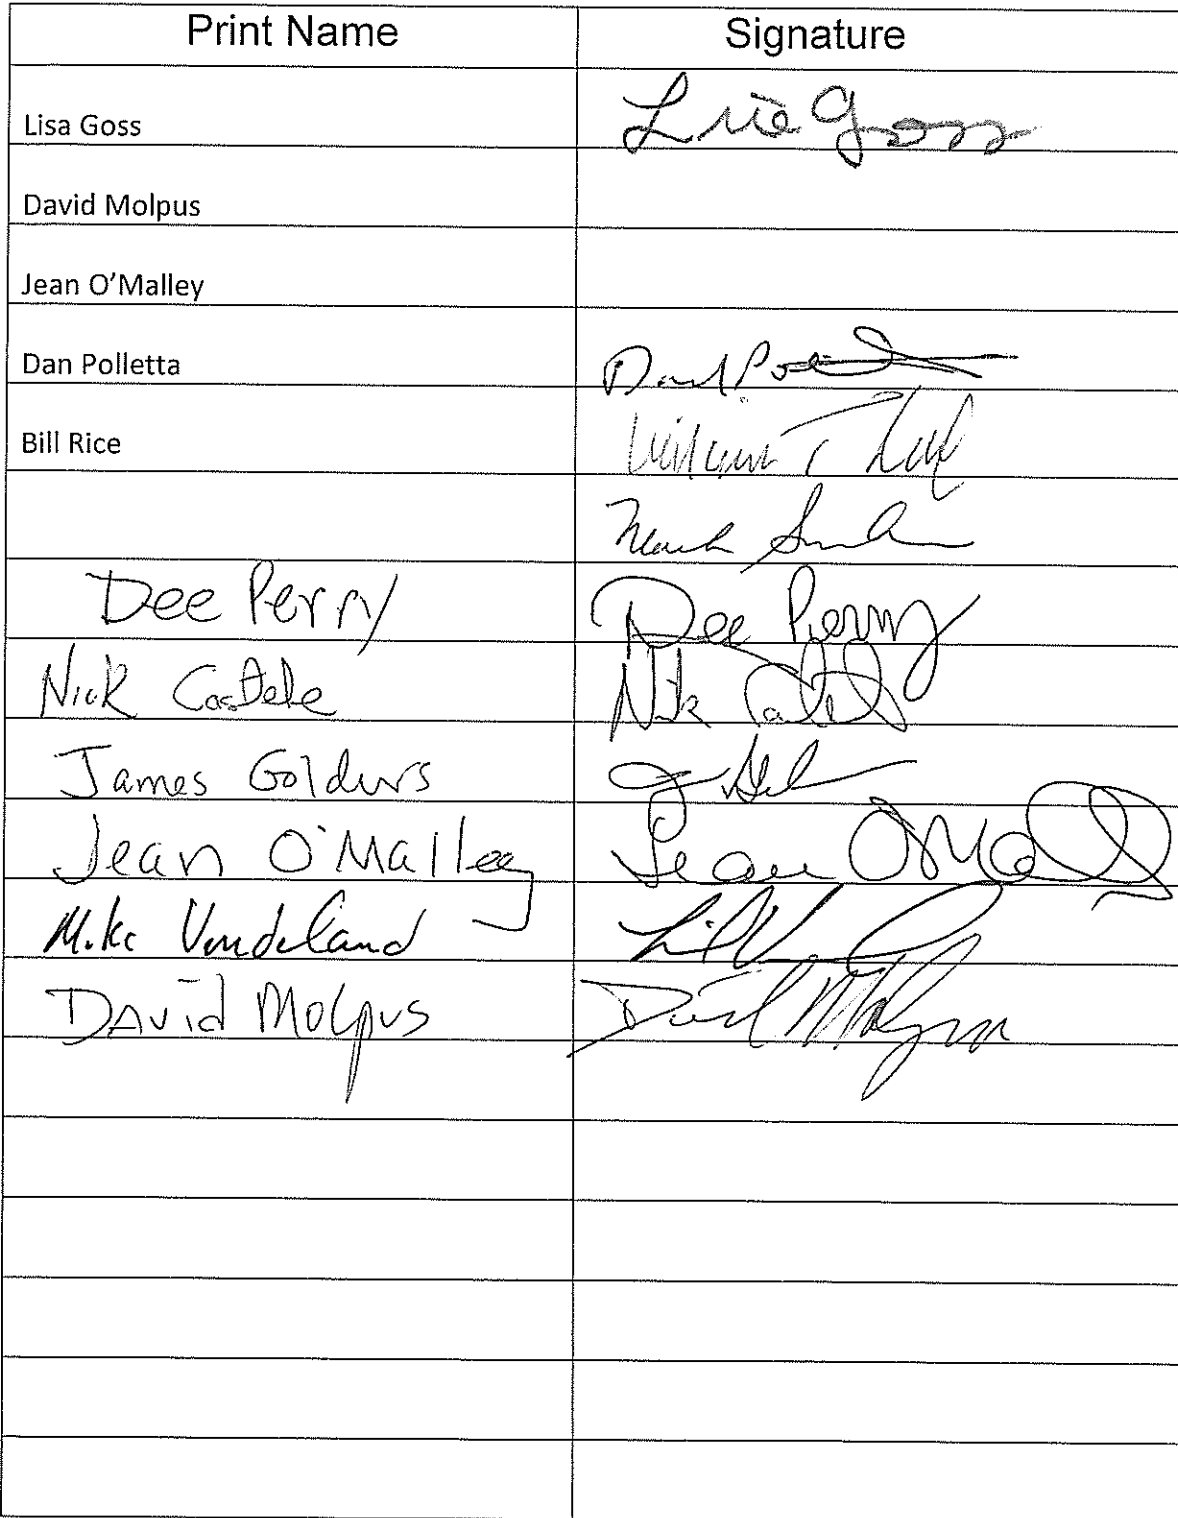 Print Name Signature
Lisa Goss Lisa Goss
David Molpus
Jean O'Malley
Dan Polletta
Bill Rice William T
Mark
Dee Perry Dee Perry
Nick Castele Nick
James Goldurs
Jean O'Malley Jean O'Mall
Mike Vendeland
David Molpus David Molpus